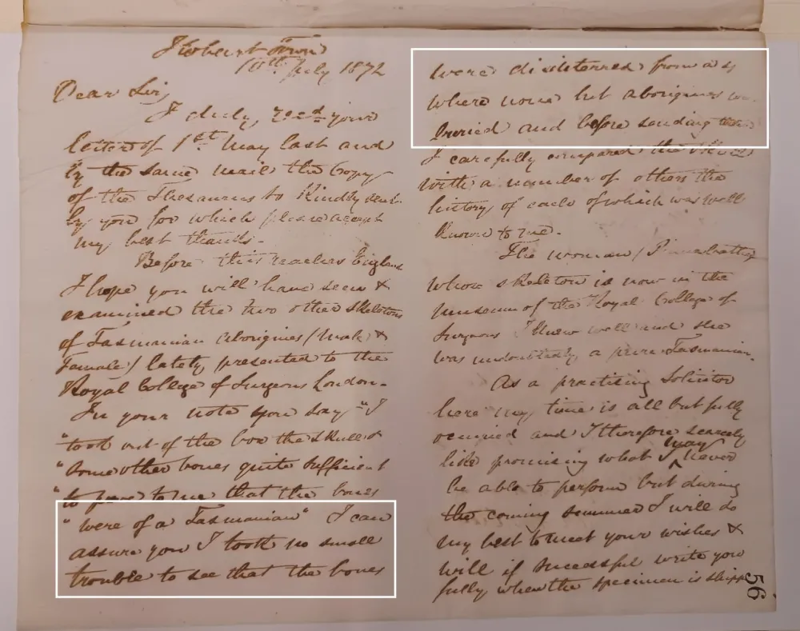 Hobart Town
10th July 1872
Dear Sir,
I duly recd your
letter of 1st May last and
by the same mail the Copy
of the Thesaurus so Kindly sent
by you for which please accept
my best thanks.
Before this reaches England
I hope you will have seen &
examined the two other skeletons
of Tasmanian Aborigines (Male &
Female) lately presented to the
Royal College of Surgeons London.
In your note you say "I
"took out of the box the skull &
"some other bones quite sufficient
"to prove to me that the bones
"were of a Tasmanian" I can
assure you I took no small
trouble to see that the bones
were disinterred from a
where none but aborigines
buried and before sending
I carefully compared the
with a number of others the
history of each of which was well
known to me.
The woman
whose skeleton is now in the
museum of the Royal College of
Surgeons I knew well and she
was undoubtedly a pure Tasmanian.
As a practising Solicitor
here my time is all but fully
occupied and I therefore scarcely
like promising what I may never
be able to perform but during
the coming summer I will do
my best to meet your wishes &
will if successful write you
fully when the specimen is
56